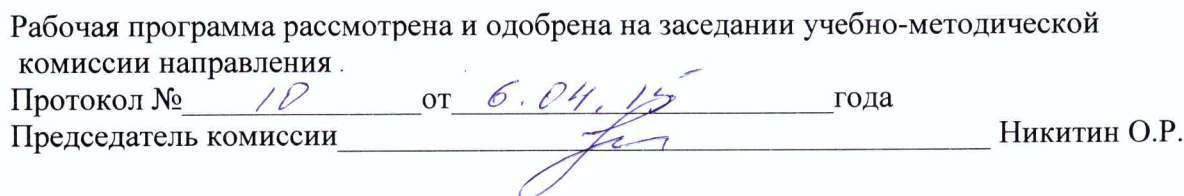 Рабочая программа рассмотрена и одобрена на заседании учебно-методической
комиссии направления .
Протокол № 10 от 6.04.15 года
Председатель комиссии Никитин О.Р.